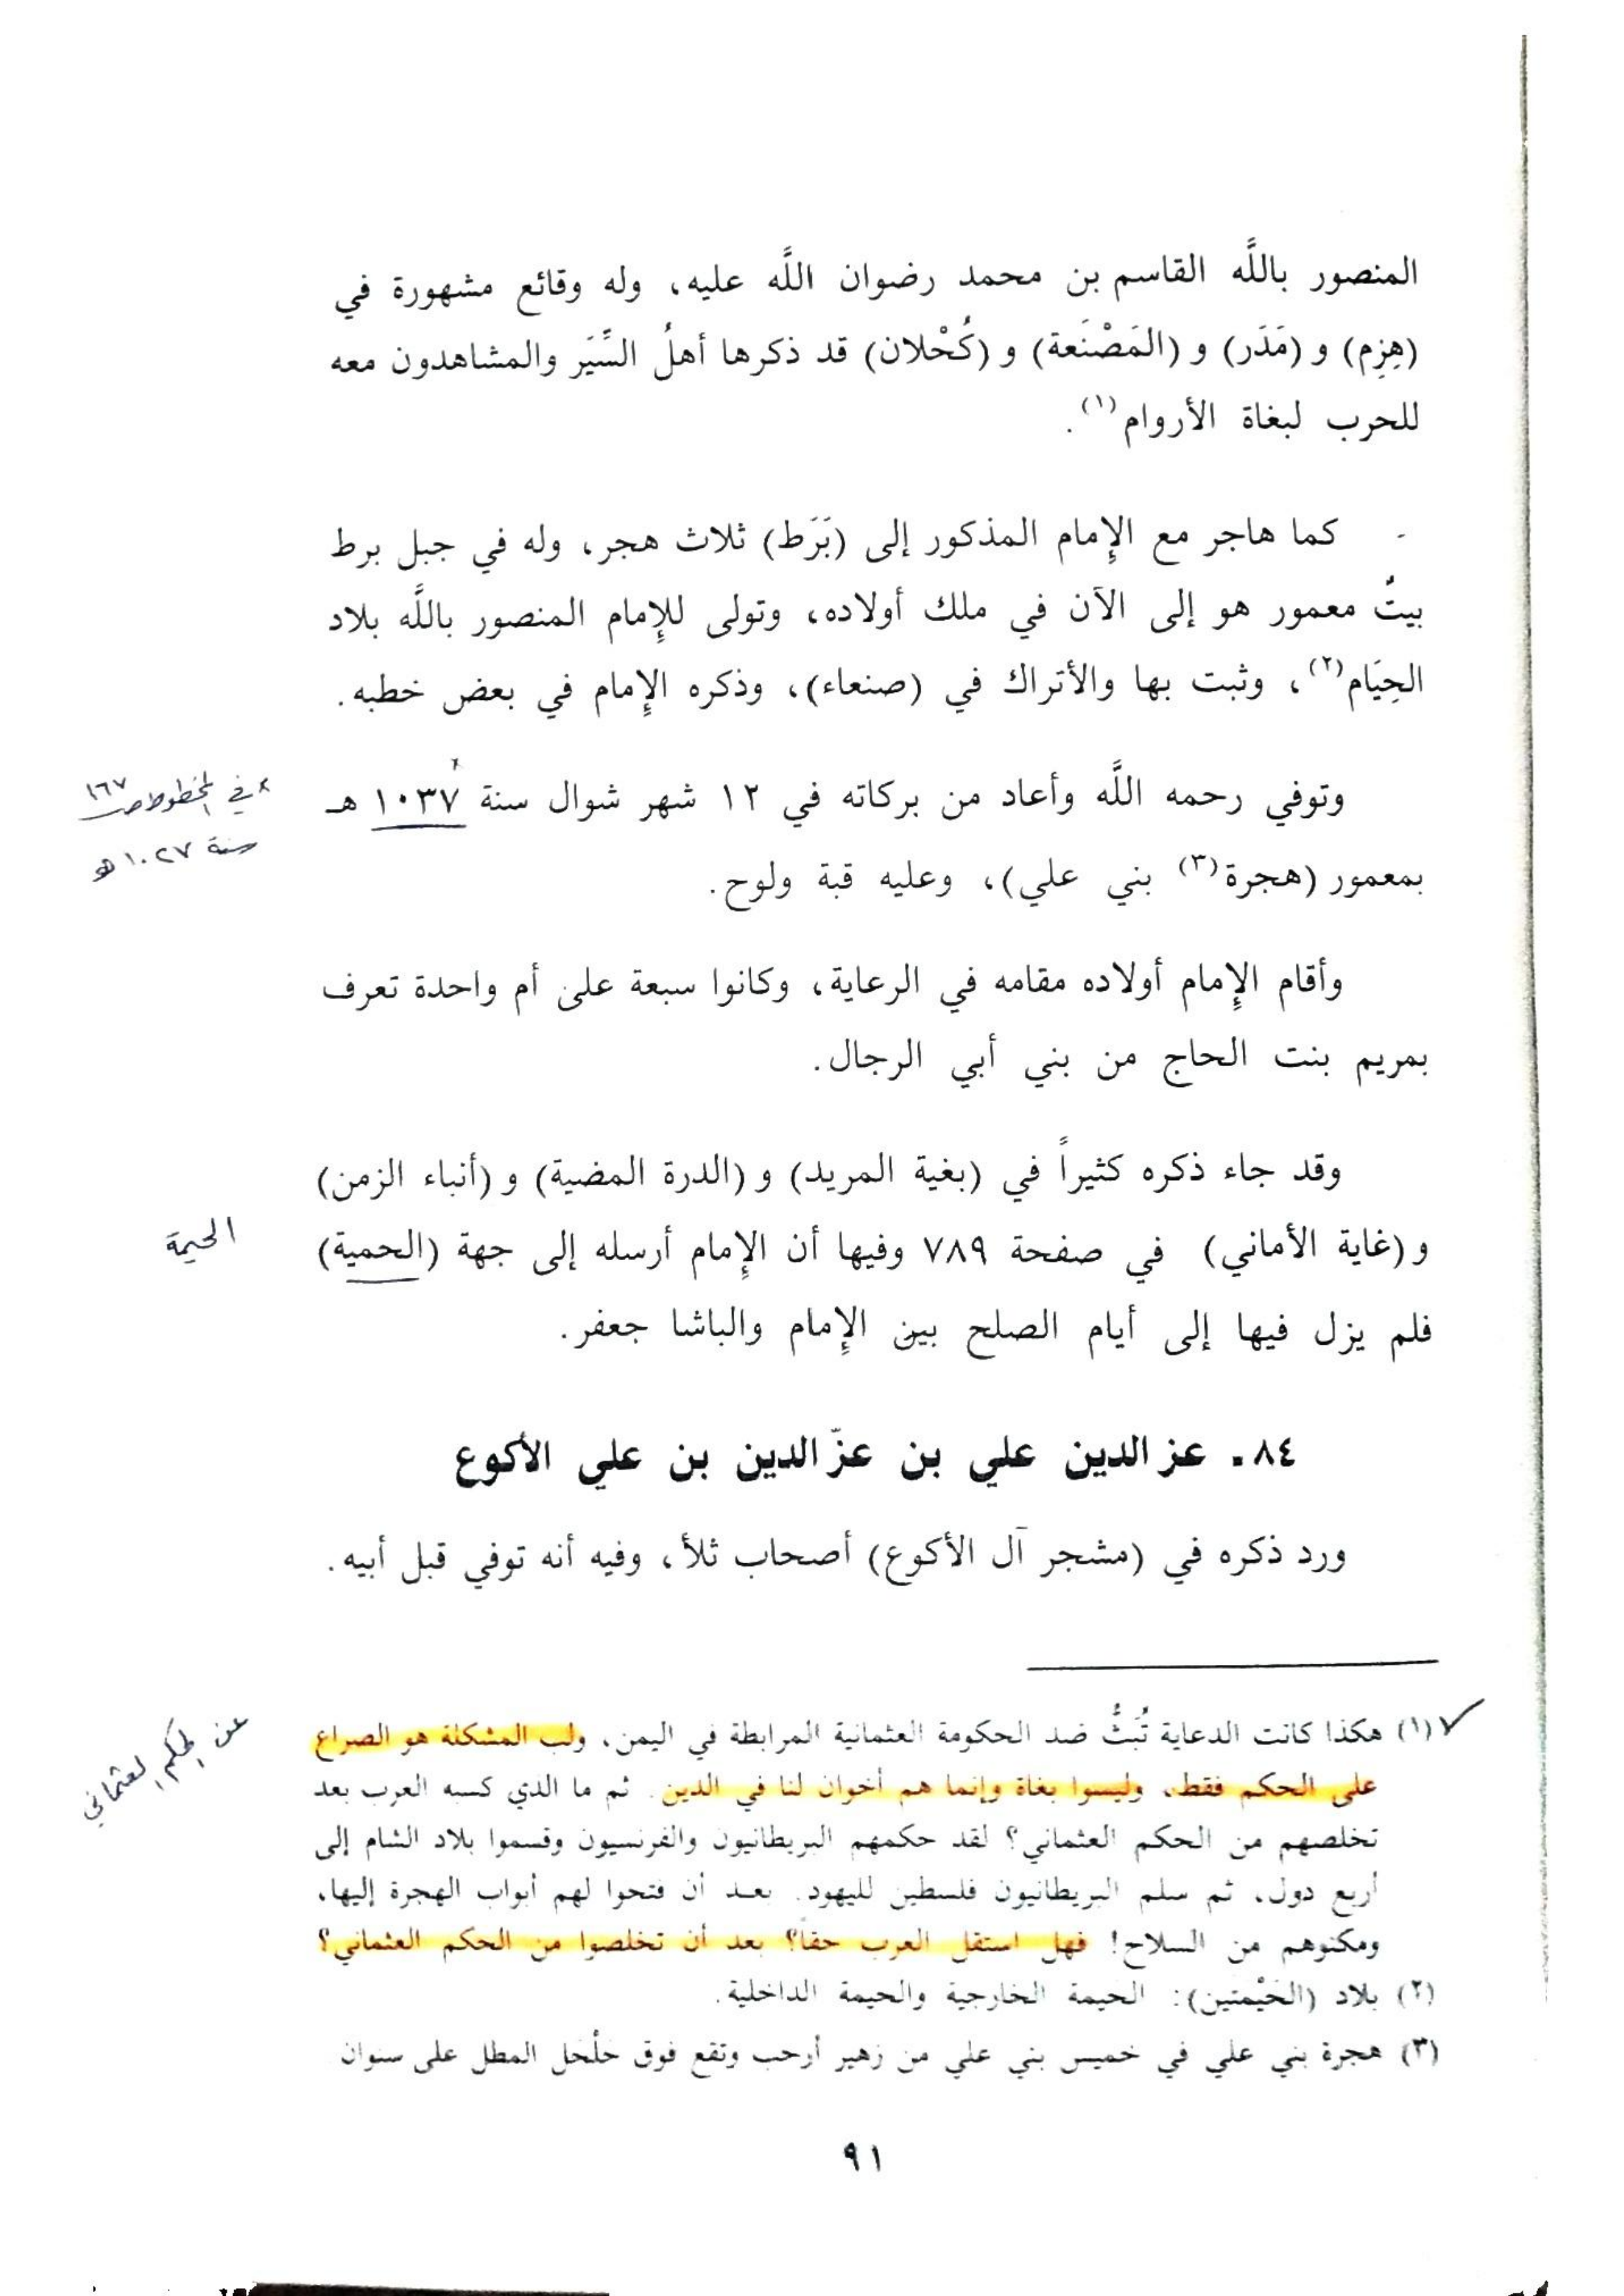 المنصور باللَّه القاسم بن محمد رضوان اللَّه عليه، وله وقائع مشهورة في
(هِزِم) و (مَدَر) و (المَصْنَعة) و (كُحْلان) قد ذكرها أهلُ السِّيَر والمشاهدون معه
للحرب لبغاة الأروام(١).
كما هاجر مع الإِمام المذكور إلى (بَرَط) ثلاث هجر، وله في جبل برط
بيتٌ معمور هو إلى الآن في ملك أولاده، وتولى للإِمام المنصور باللَّه بلاد
الحِيَام(٢)، وثبت بها والأتراك في (صنعاء)، وذكره الإِمام في بعض خطبه.
وتوفي رحمه اللَّه وأعاد من بركاته في ١٢ شهر شوال سنة ١٠٣٧ هـ
× في المخطوط ص ١٦٧
سنة ١٠٢٧ هـ
بمعمور (هجرة(٣) بني علي)، وعليه قبة ولوح.
وأقام الإِمام أولاده مقامه في الرعاية، وكانوا سبعة على أم واحدة تعرف
بمريم بنت الحاج من بني أبي الرجال.
وقد جاء ذكره كثيراً في (بغية المريد) و (الدرة المضية) و (أنباء الزمن)
و (غاية الأماني) في صفحة ٧٨٩ وفيها أن الإِمام أرسله إلى جهة (الحمية)
الحيمة
فلم يزل فيها إلى أيام الصلح بين الإِمام والباشا جعفر.
٨٤ ـ عز الدين علي بن عزّ الدين بن علي الأكوع
ورد ذكره في (مشجر آل الأكوع) أصحاب ثلأ، وفيه أنه توفي قبل أبيه.
(١) هكذا كانت الدعاية تُبَثُّ ضد الحكومة العثمانية المرابطة في اليمن، ولب المشكلة هو الصراع
عن الحكم العثماني
على الحكم فقط، وليسوا بغاة وإنما هم أخوان لنا في الدين. ثم ما الذي كسبه العرب بعد
تخلصهم من الحكم العثماني؟ لقد حكمهم البريطانيون والفرنسيون وقسموا بلاد الشام إلى
أربع دول، ثم سلم البريطانيون فلسطين لليهود. بعد أن فتحوا لهم أبواب الهجرة إليها،
ومكنوهم من السلاح! فهل استقل العرب حقاً؟ بعد أن تخلصوا من الحكم العثماني؟
(٢) بلاد (الحَيْمتين): الحيمة الخارجية والحيمة الداخلية.
(٣) هجرة بني علي في خميس بني علي من زهير أرحب وتقع فوق حلْحل المطل على سنوان
٩١